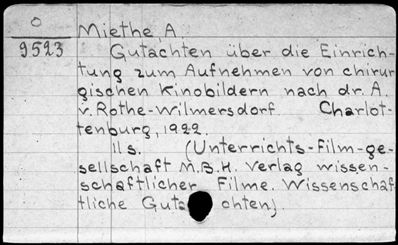 O
9523
Miethe, A.
Gutachten über die Einrich-
tung zum Aufnehmen von chirur
gischen Kinobildern nach dr. A.
v. Rothe-Wilmersdorf Charlot-
tenburg, 1922.
11 s. (Unterrichts-Film-ge-
sellschaft M.B.H. Verlag wissen-
schaftlicher Filme. Wissenschaf
tliche Gutachten).